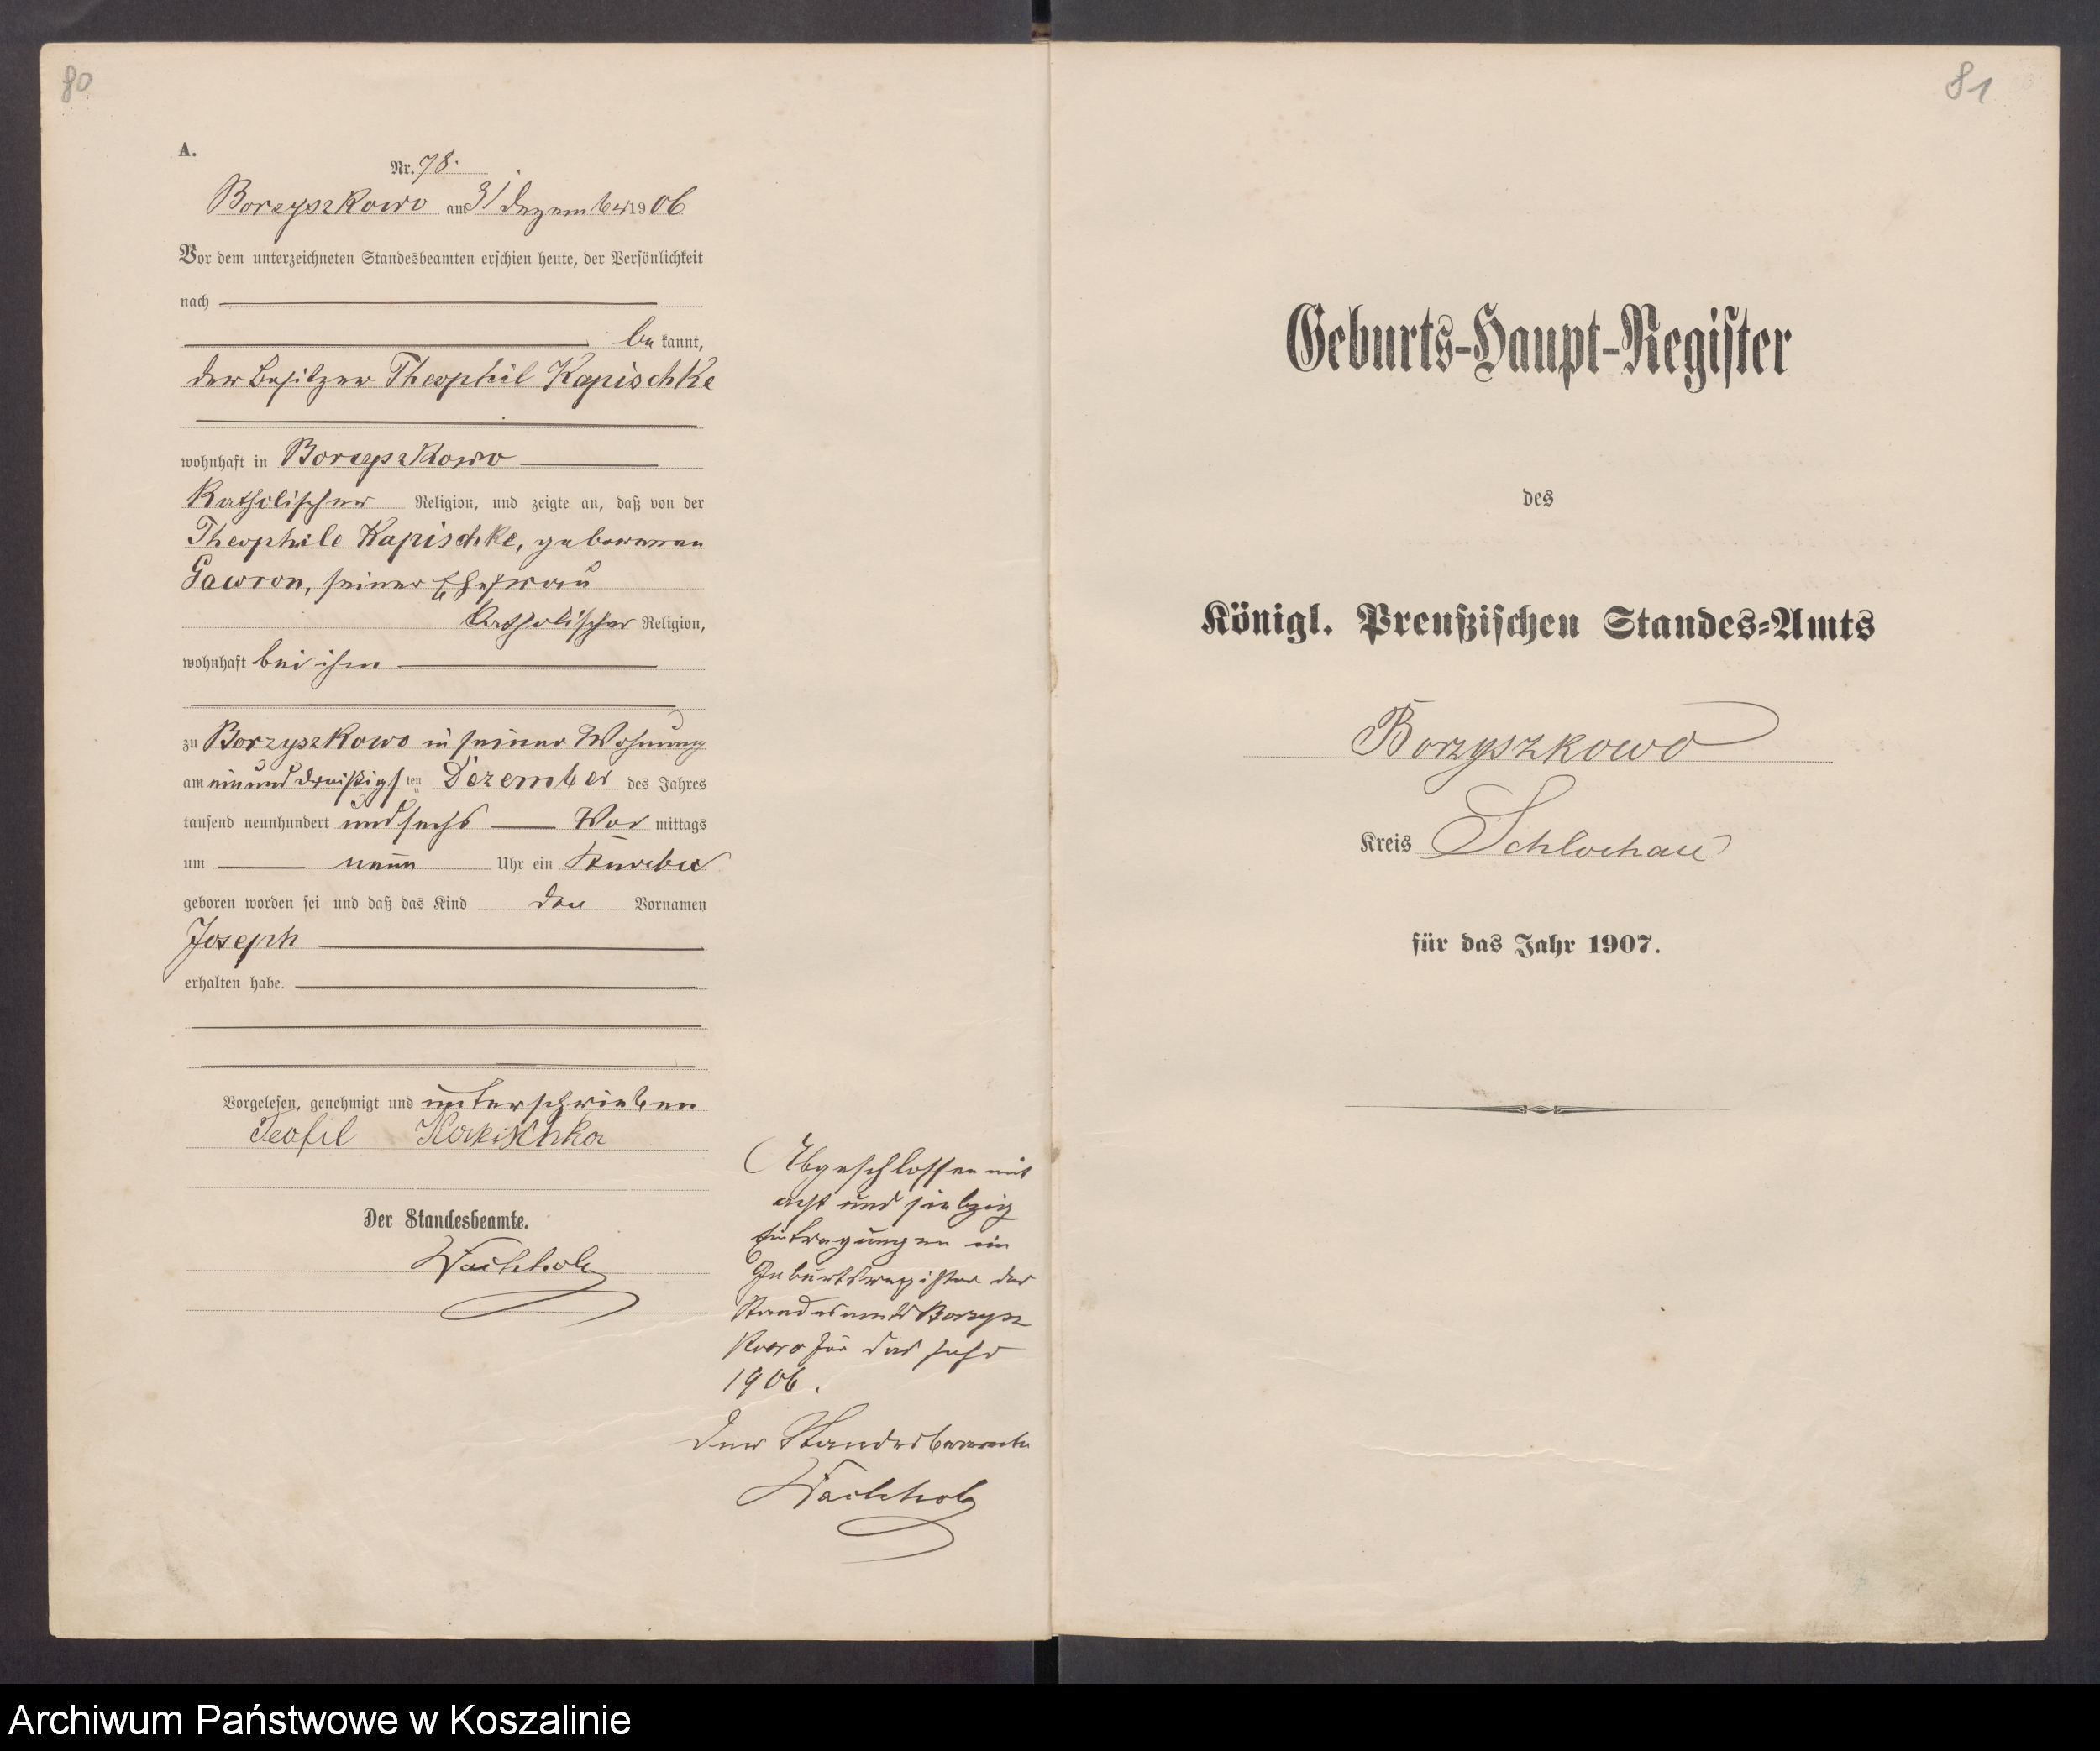 80
A.
Nr. 78.
Borzyszkowo am 31 Dezember 1906
Vor dem unterzeichneten Standesbeamten erschien heute, der Persönlichkeit
nach
be kannt,
der Besitzer Theophil Kapischke
wohnhaft in Borzyszkowo
katholischer Religion, und zeigte an, daß von der
Theophile Kapischke, geborenen
Gawron, seiner Ehefrau
katholischer Religion,
wohnhaft bei ihm
zu Borzyszkowo in seiner Wohnung
am einunddreißigsten Dezember des Jahres
tausend neunhundert und sechs Vor mittags
um neun Uhr ein Knabe
geboren worden sei und daß das Kind den Vornamen
Joseph
erhalten habe.
Vorgelesen, genehmigt und unterschrieben
Teofil Kapischka
Der Standesbeamte.
Wachholz
Abgeschlossen mit
acht und siebzig
Eintragungen im
Geburtsregister des
Standesamts Borzysz
kowo für das Jahr
1906.
Der Standesbeamte
Wachholz
81
Geburts-Haupt-Register
des
Königl. Preußischen Standes-Amts
Borzyszkowo
Kreis Schlochau
für das Jahr 1907.
Archiwum Państwowe w Koszalinie